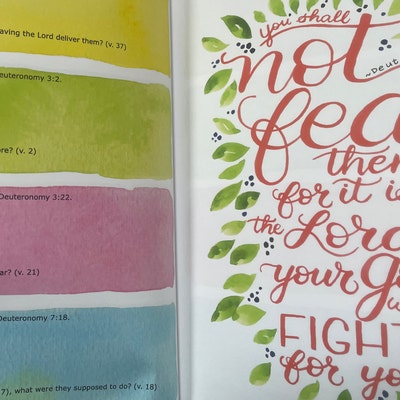 aving the Lord deliver them? (v. 37)
euteronomy 3:2.
re? (v. 2)
Deuteronomy 3:22.
ar? (v. 21)
Deuteronomy 7:18.
7), what were they supposed to do? (v. 18)
you shall
not
~Deut
fea
them
for it i
the Lord
your G
w
FIGHT
for yo